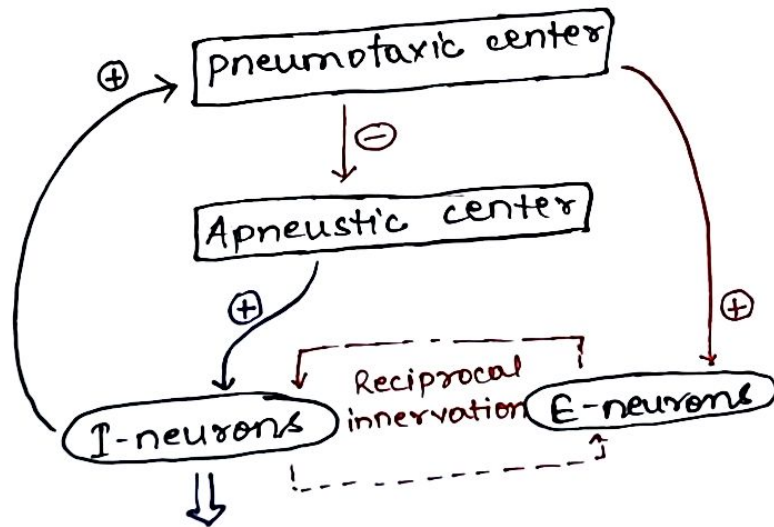 Pneumotaxic center
+
−
Apneustic center
+
+
Reciprocal
innervation
I-neurons
E-neurons